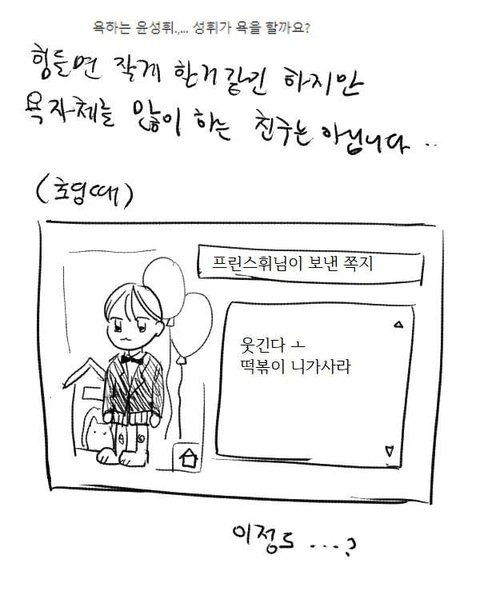 욕하는 윤성휘.,... 성휘가 욕을 할까요?
힘들면 작게 한거같긴 하지만
욕자체를 많이 하는 친구는 아닙니다..
(초딩때)
프린스휘님이 보낸 쪽지
웃긴다 ㅗ
떡볶이 니가사라
이정도 ....?